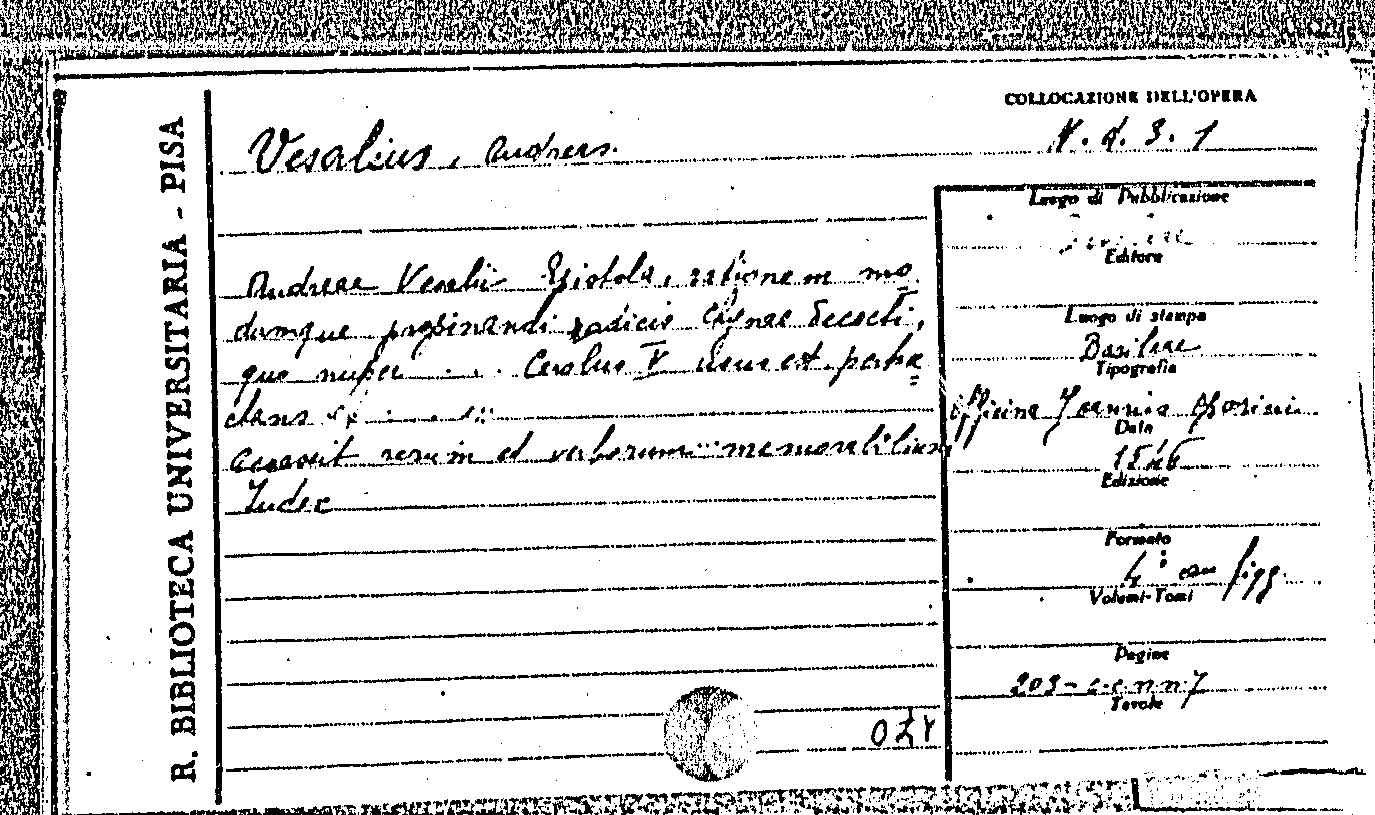 R. BIBLIOTECA UNIVERSITARIA - PISA
COLLOCAZIONE DELL'OPERA
Vesalius, Andreas.
V. d. 3. 1
Luogo di Pubblicazione
Editore
Andreae Vesalii Epistola, rationem mo
damque propinandi radicis Chynae decocti,
quo nuper . . . Carolus V usus est, perta=
ctans
accessit rerum et verborum memorabilium
Index
Luogo di stampa
Basileae
Tipografia
Officina Joannis Oporini
Data
1546
Edizione
Formato
4° con figg.
Volumi-Tomi
Pagine
203
Tavole